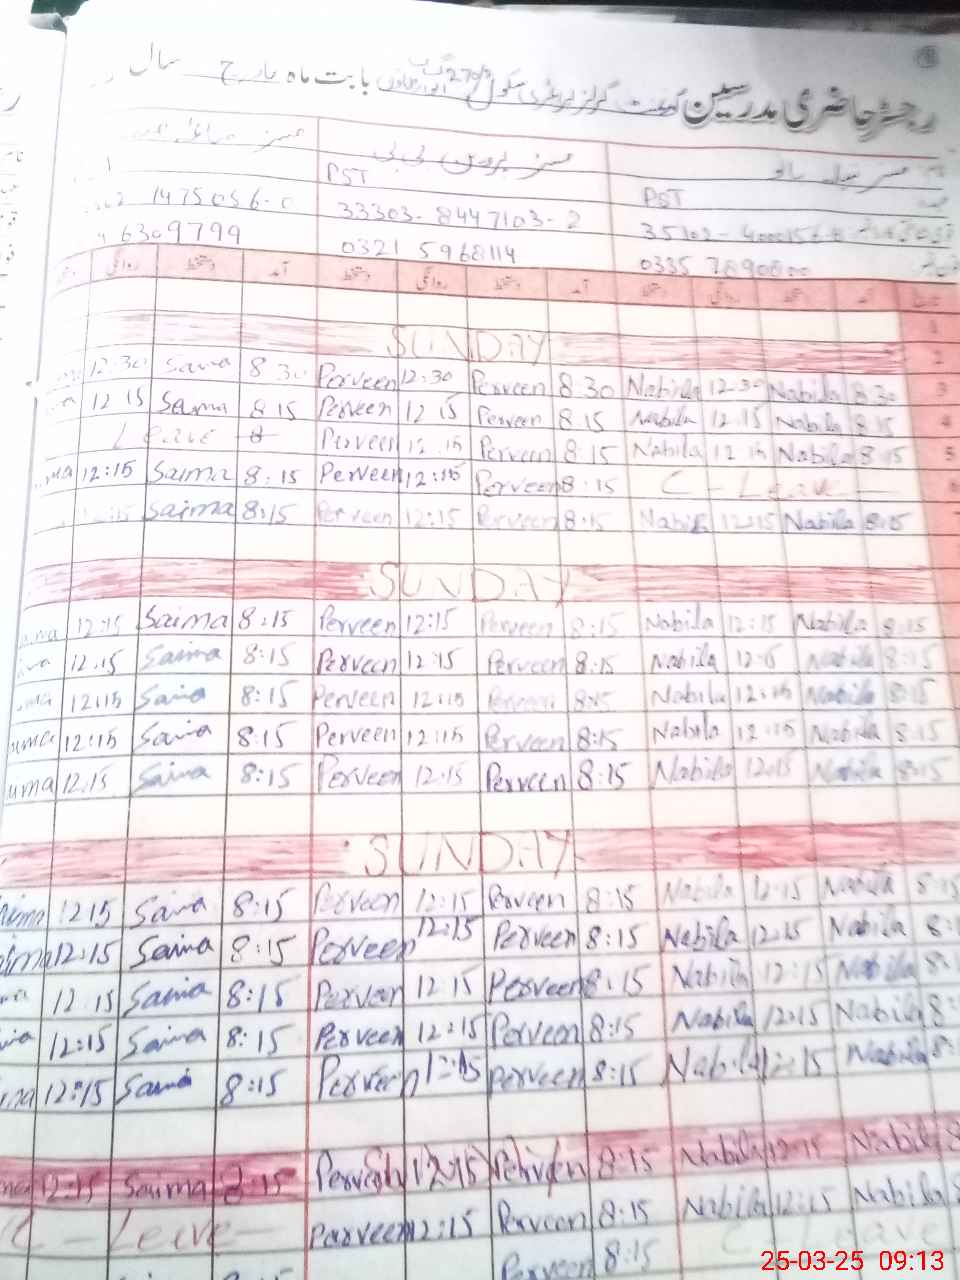 رجسٹر حاضری مدرسین گورنمنٹ گرلز پرائمری سکول 270 بابت ماہ مارچ سال
مسز نبیلہ مسز پروین بی بی مسز
PST PST
33303-8447103-2 1475056-0
0335 7890800 0321 5968114 6309799
آمد دستخط روانگی دستخط آمد دستخط روانگی دستخط آمد دستخط روانگی
1
SUNDAY 2
12:30 Saima 8 30 Perveen 12:30 Perveen 8:30 Nabila 12:30 Nabila 8:30 3
12 15 Saima 8 15 Perveen 12 15 Perveen 8 15 Nabila 12:15 Nabila 8:15 4
Leave Perveen 12.15 Perveen 8:15 Nabila 12 15 Nabila 8:15 5
12:15 Saima 8:15 Perveen 12:15 Perveen 8:15 C - Leave —
12:15 Saima 8:15 Perveen 12:15 Perveen 8:15 Nabila 12:15 Nabila 8:15 7
SUNDAY
12:15 Saima 8:15 Perveen 12:15 Perveen 8:15 Nabila 12:15 Nabila 8:15
12:15 Saima 8:15 Perveen 12:15 Perveen 8:15 Nabila Nabila 8:15
12:15 Saima 8:15 Perveen 12:15 Perveen 8:15 Nabila 12:15 Nabila 8:15
12:15 Saima 8:15 Perveen 12:15 Perveen 8:15 Nabila 12:15 Nabila 8:15
12:15 Saima 8:15 Perveen 12:15 Perveen 8:15 Nabila 12:15 Nabila 8:15
SUNDAY
12 15 Saima 8:15 Perveen 12:15 Perveen 8:15 Nabila 12:15 Nabila 8:15
12:15 Saima 8:15 Perveen 12:15 Perveen 8:15 Nabila 12:15 Nabila
12.15 Saima 8:15 Perveen 12 15 Perveen 8:15 Nabila 12:15 Nabila
12:15 Saima 8:15 Perveen 12:15 Perveen 8:15 Nabila 12:15 Nabila
12:15 Saima 8:15 Perveen 12:15 Perveen 8:15 Nabila 12:15 Nabila
12:15 Saima 8:15 Perveen 12:15 Perveen 8:15 Nabila 12:15 Nabila
C - Leave — Perveen 12:15 Perveen 8:15 Nabila 12:15 Nabila
Perveen 8:15 C Leave
25-03-25 09:13